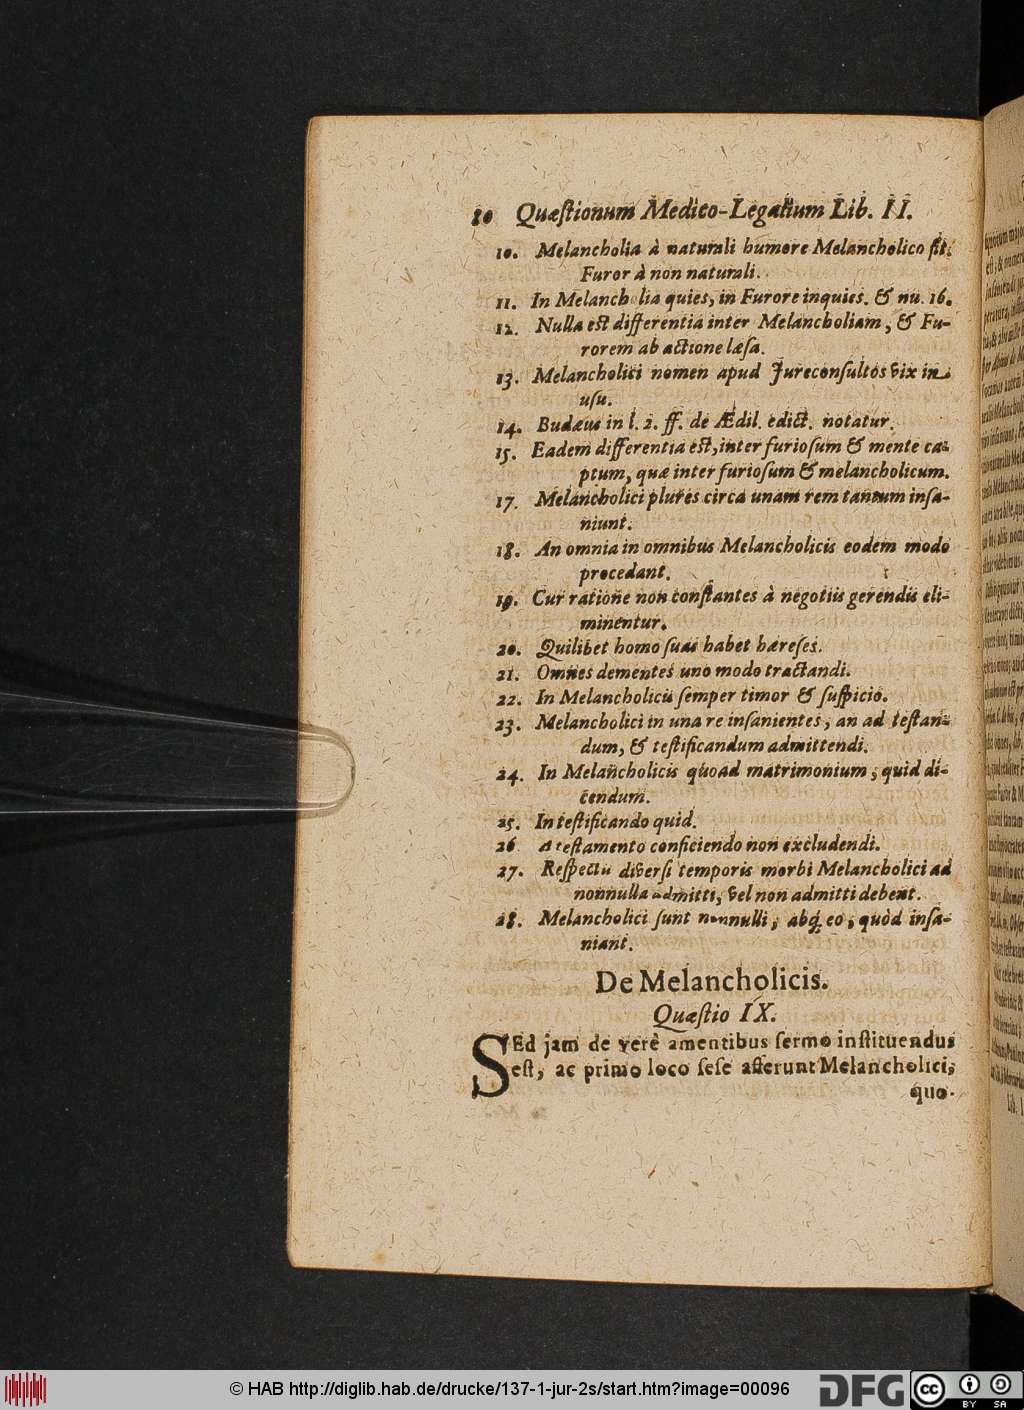 80 Quæſtionum Medico-Legalium Lib. II.
10. Melancholia à naturali humore Melancholico fit,
Furor à non naturali.
11. In Melancholia quies, in Furore inquies. & nu. 16.
12. Nulla eſt differentia inter Melancholiam, & Fu-
rorem ab actione læſa.
13. Melancholici nomen apud Jureconſultos vix in
uſu.
14. Budæus in l. 2. ff. de Ædil. edict. notatur.
15. Eadem differentia eſt, inter furioſum & mente ca-
ptum, quæ inter furioſum & melancholicum.
17. Melancholici plures circa unam rem tantum inſa-
niunt.
18. An omnia in omnibus Melancholicis eodem modo
procedant.
19. Cur ratione non conſtantes à negotiis gerendis eli-
minentur.
20. Quilibet homo ſuas habet hæreſes.
21. Omnes dementes uno modo tractandi.
22. In Melancholicis ſemper timor & ſuſpicio.
23. Melancholici in una re inſanientes, an ad teſtan-
dum, & teſtificandum admittendi.
24. In Melancholicis quoad matrimonium, quid di-
cendum.
25. In teſtificando quid.
26. A teſtamento conficiendo non excludendi.
27. Reſpectu diverſi temporis morbi Melancholici ad
nonnulla admitti, vel non admitti debeat.
28. Melancholici ſunt nonnulli, abq; eo, quòd inſa-
niant.
De Melancholicis.
Quæſtio IX.
SEd jam de verè amentibus ſermo inſtituendus
eſt, ac primo loco ſeſe afferunt Melancholici,
quo-
© HAB http://diglib.hab.de/drucke/137-1-jur-2s/start.htm?image=00096
DFG
cc
BY SA